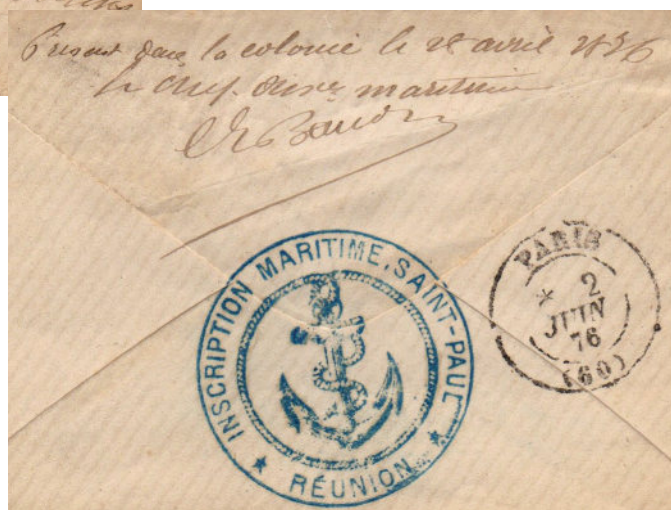 Présent dans la colonie le 28 avril 1876
Le chef maritime
INSCRIPTION MARITIME. SAINT-PAUL
★ RÉUNION ★
PARIS
* 2
JUIN
76
(60)